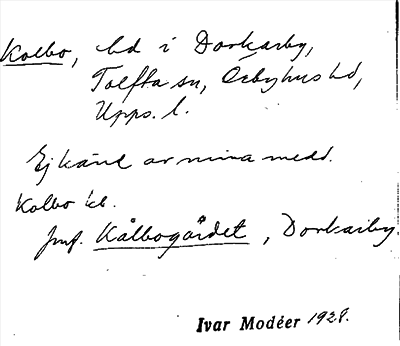 Kolbo, bd i Dorkarby,
Tolfta sn, Örbyhus hd,
Upps. l.
Ej känt av mina medd.
Kolbo kb.
Jmf. Kålbogärdet, Dorkarby.
Ivar Modéer 1928.